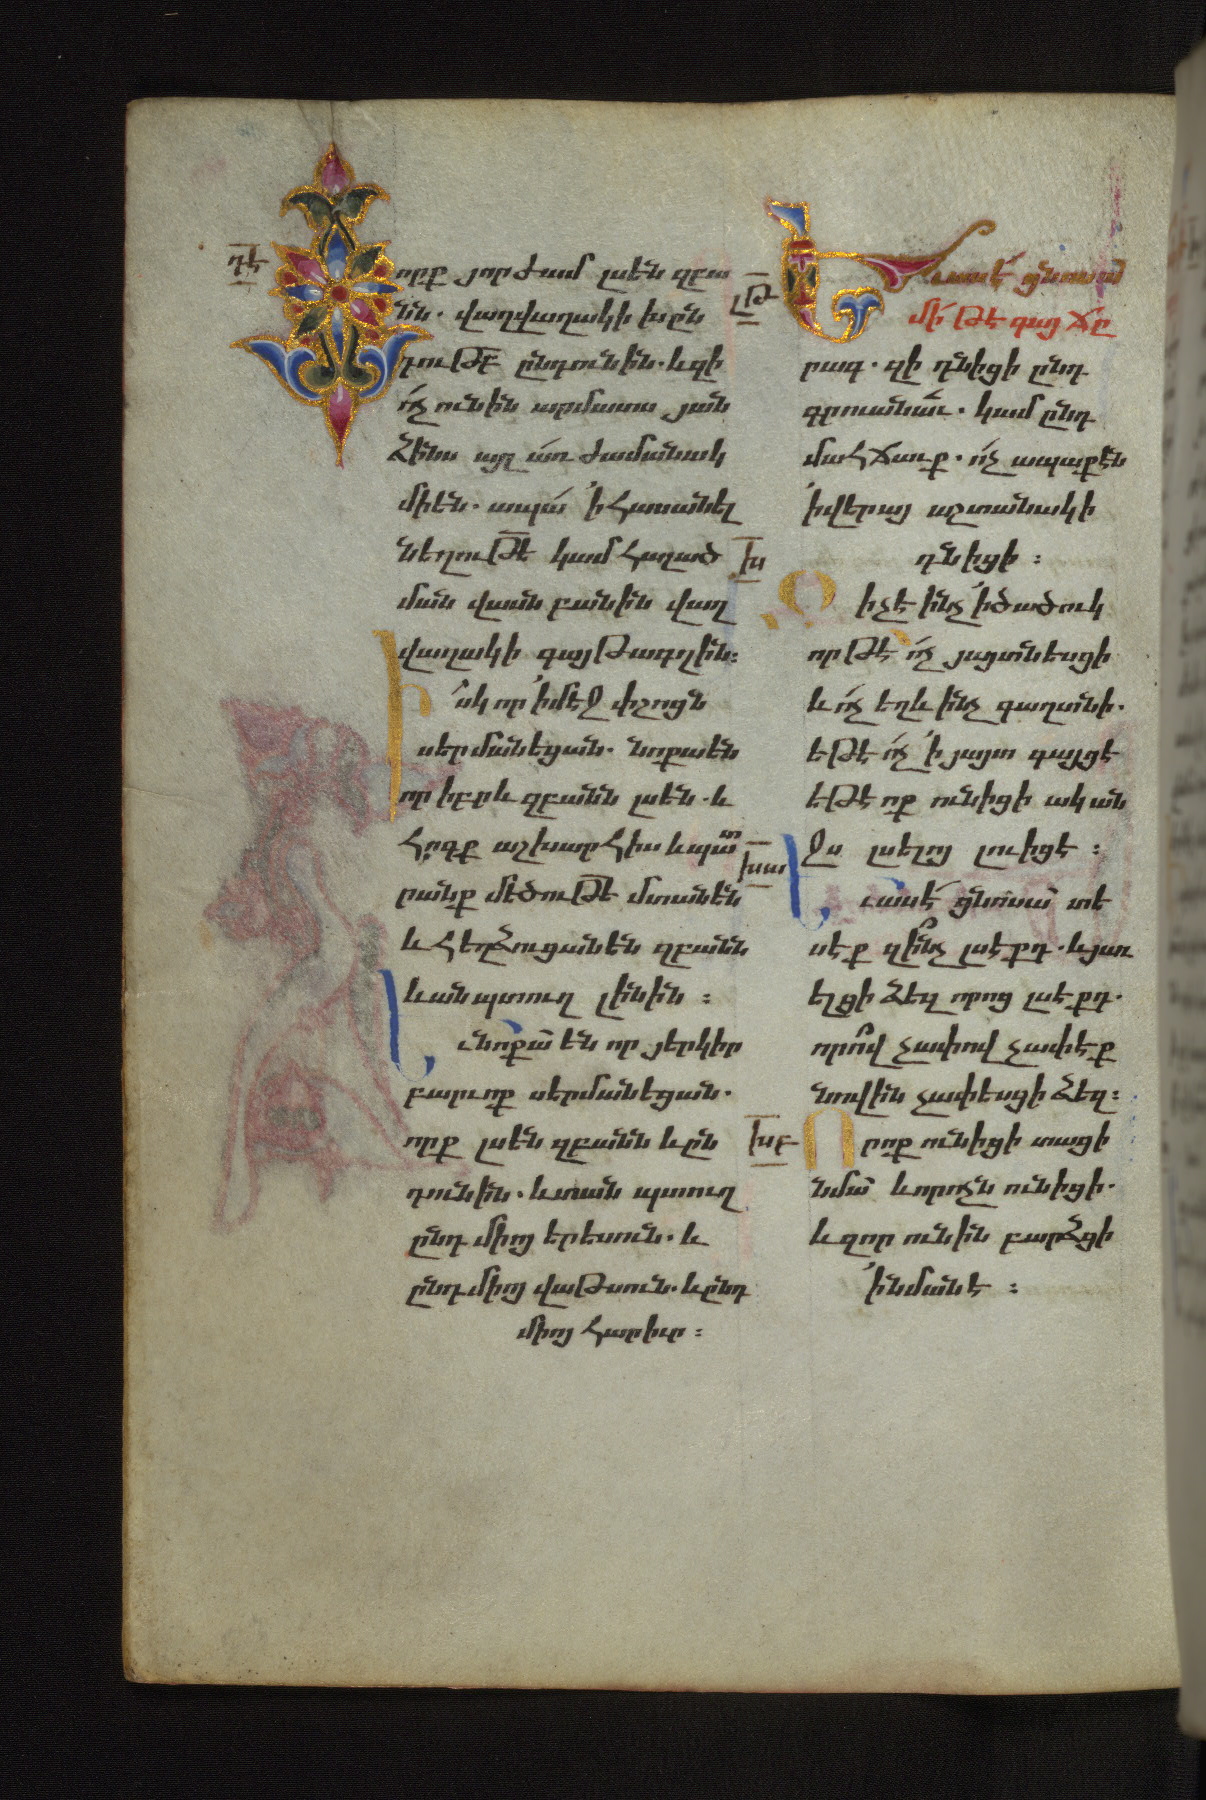 դէ
որք յորժամ լսեն զբա
նն. վաղվաղակի խըն
դութբ ընդունին. և զի
ոչ ունին արմատս յան
ձինս այլ առ ժամանակ
մի են. ապա ՛ի հասանել
նեղութե կամ հալած
ման վասն բանին վաղ
վաղակի գայթագղին։
Իսկ որ ՛ի մէջ փշոցն
սերմանեցան. նոքա են
որ իբրև զբանն լսեն. և
հոգք աշխարհիս և պատ
րանք մեծութե մտանեն
և հեղձուցանեն զբանն
և անպտուղ լինին ։
Եւ նոքա են որ յերկիր
բարւոք սերմանեցան.
որք լսեն զբանն և ըն
դունին. և տան պտուղ
ընդ միոյ երեսուն. և
ընդ միոյ վաթսուն. և ընդ
միոյ հարիւր ։
լթ
Եւ ասէ ցնոսա
մի թէ գայ ճը
րագ. զի դնիցի ընդ
գրուանաւ. կամ ընդ
մահճաւք. ոչ ապաքէն
՛ի վերայ աշտանակի
դնիցի ։
խ
Զի չէ ինչ ՛ի ծածուկ
որ թէ ոչ յայտնեսցի
և ոչ եղև ինչ գաղտնի.
եթէ ոչ ՛ի յայտ գայցէ
եթէ ոք ունիցի ական
ջս լսելոյ լուիցէ ։
խա
Եւ ասէ ցնոսա տե
սէք զինչ լսէքդ. և յաւ
ելցի ձեզ որոց լսէքդ.
որով չափով չափէք
նովին չափեսցի ձեզ։
խբ
Որ ոք ունիցի տացի
նմա և որ ոչն ունիցի.
և զոր ունին բարձցի
՛ի նմանէ ։